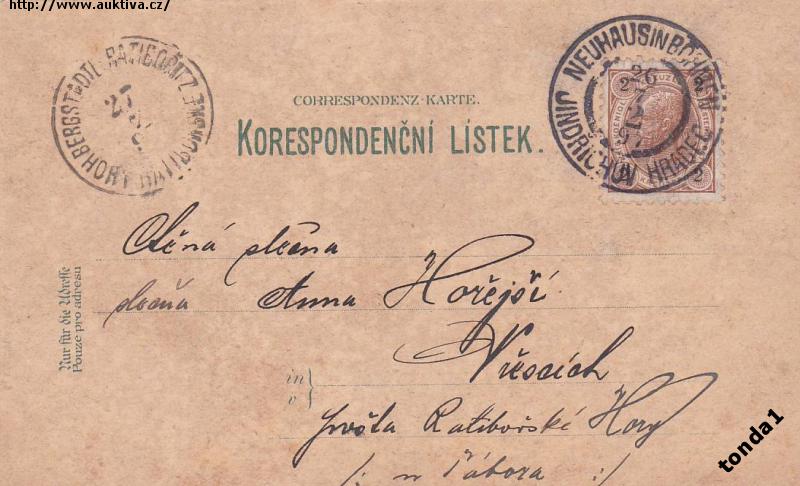 http://www.auktiva.cz/
NEUHAUS IN BÖHMEN
JINDŘICHŮV HRADEC
26
CORRESPONDENZ-KARTE.
KORESPONDENČNÍ LÍSTEK.
Ctěná slečna
slečna Anna Hořejší
Nur für die Adresse
Pouze pro adresu
in
v
Vřescích
pošta Ratibořské Hory
/: u Tábora :/
tonda1